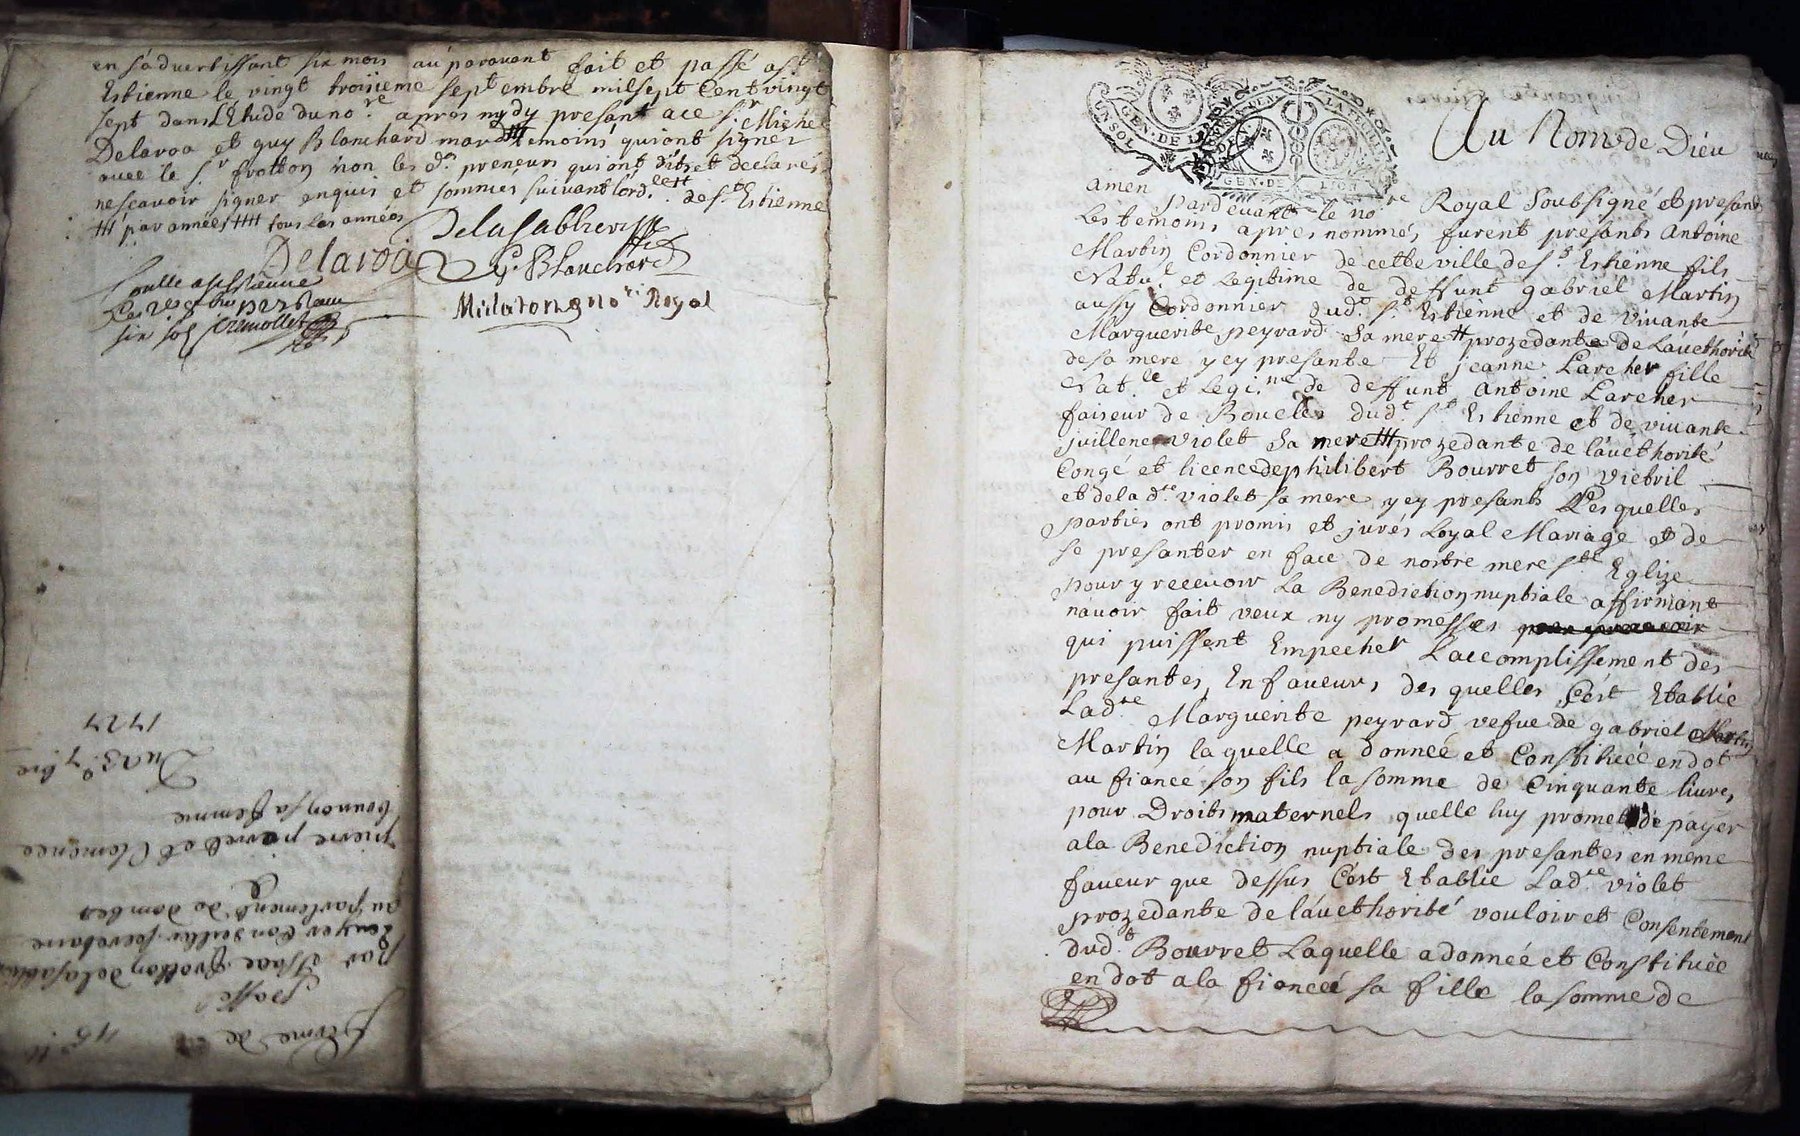 en s'advertissant six mois auparavant fait et passé a St
Estienne le vingt troisieme septembre mil sept Cent vingt
sept dans L'Etude du nore apres mydy presant a ce sr. Michel
Delaroa et guy Blanchard mard temoins qui ont signés
avec le sr frotton non les ds. preneurs qui ont dits et declarés
ne scavoir signer enquis et sommés suivant l'ord.
de St Estienne
par années tous les années
Delaroa
G. Blanchard
Controllé a St Estienne
six sols
Royal
1727
Du 23e 7bre
sa femme
pierre et Clemence
au parlement de dombes
Conseiller secretaire
par Isaac frotton
passé
ferme de
UN SOL
GEN · DE LION
LA FEUILLE
GEN · DE · LION
Au Nom de Dieu
amen Pardevant le nore Royal Soubsigné et presant
Les temoins apres nommés, furent presants Antoine
Martin Cordonnier de cette ville de St. Estienne fils
Natul. et Legitime de deffunt gabriel Martin
aussy Cordonnier dudt. St Estienne et de vivante
Marguerite peyrard Sa mere prozedante de L'aucthorité
de sa mere y cy presante Et jeanne Larcher fille
Natle. et Legi.me de deffunt Antoine Larcher
faiseur de Boucles dudt St Estienne et de vivante
juillene violet Sa mere prozedante de l'aucthorité
Congé et licence de philibert Bourret son
et de la dte. violet sa mere y cy presants Lesquelles
parties ont promis et jurés Loyal Mariage et de
se presanter en face de nostre mere Ste Eglize
pour y recevoir La Benediction nuptiale affirmant
n'avoir fait veux ny promesses
qui puissent Empecher L'accomplissement des
presantes, En faveurs des quelles C'est Etablie
Ladte Marguerite peyrard vefue de gabriel
Martin la quelle a donneé et Constitueé en dot
au fiancé son fils la somme de Cinquante livres
pour Droits maternels quelle luy promet de payer
a la Benediction nuptiale des presantes en meme
faveur que dessus C'est Etablie Ladte violet
prozedante de l'aucthorité vouloir et Consentement
dudt Bourret Laquelle a donneé et Constitueé
en dot a la fianceé sa fille la somme de